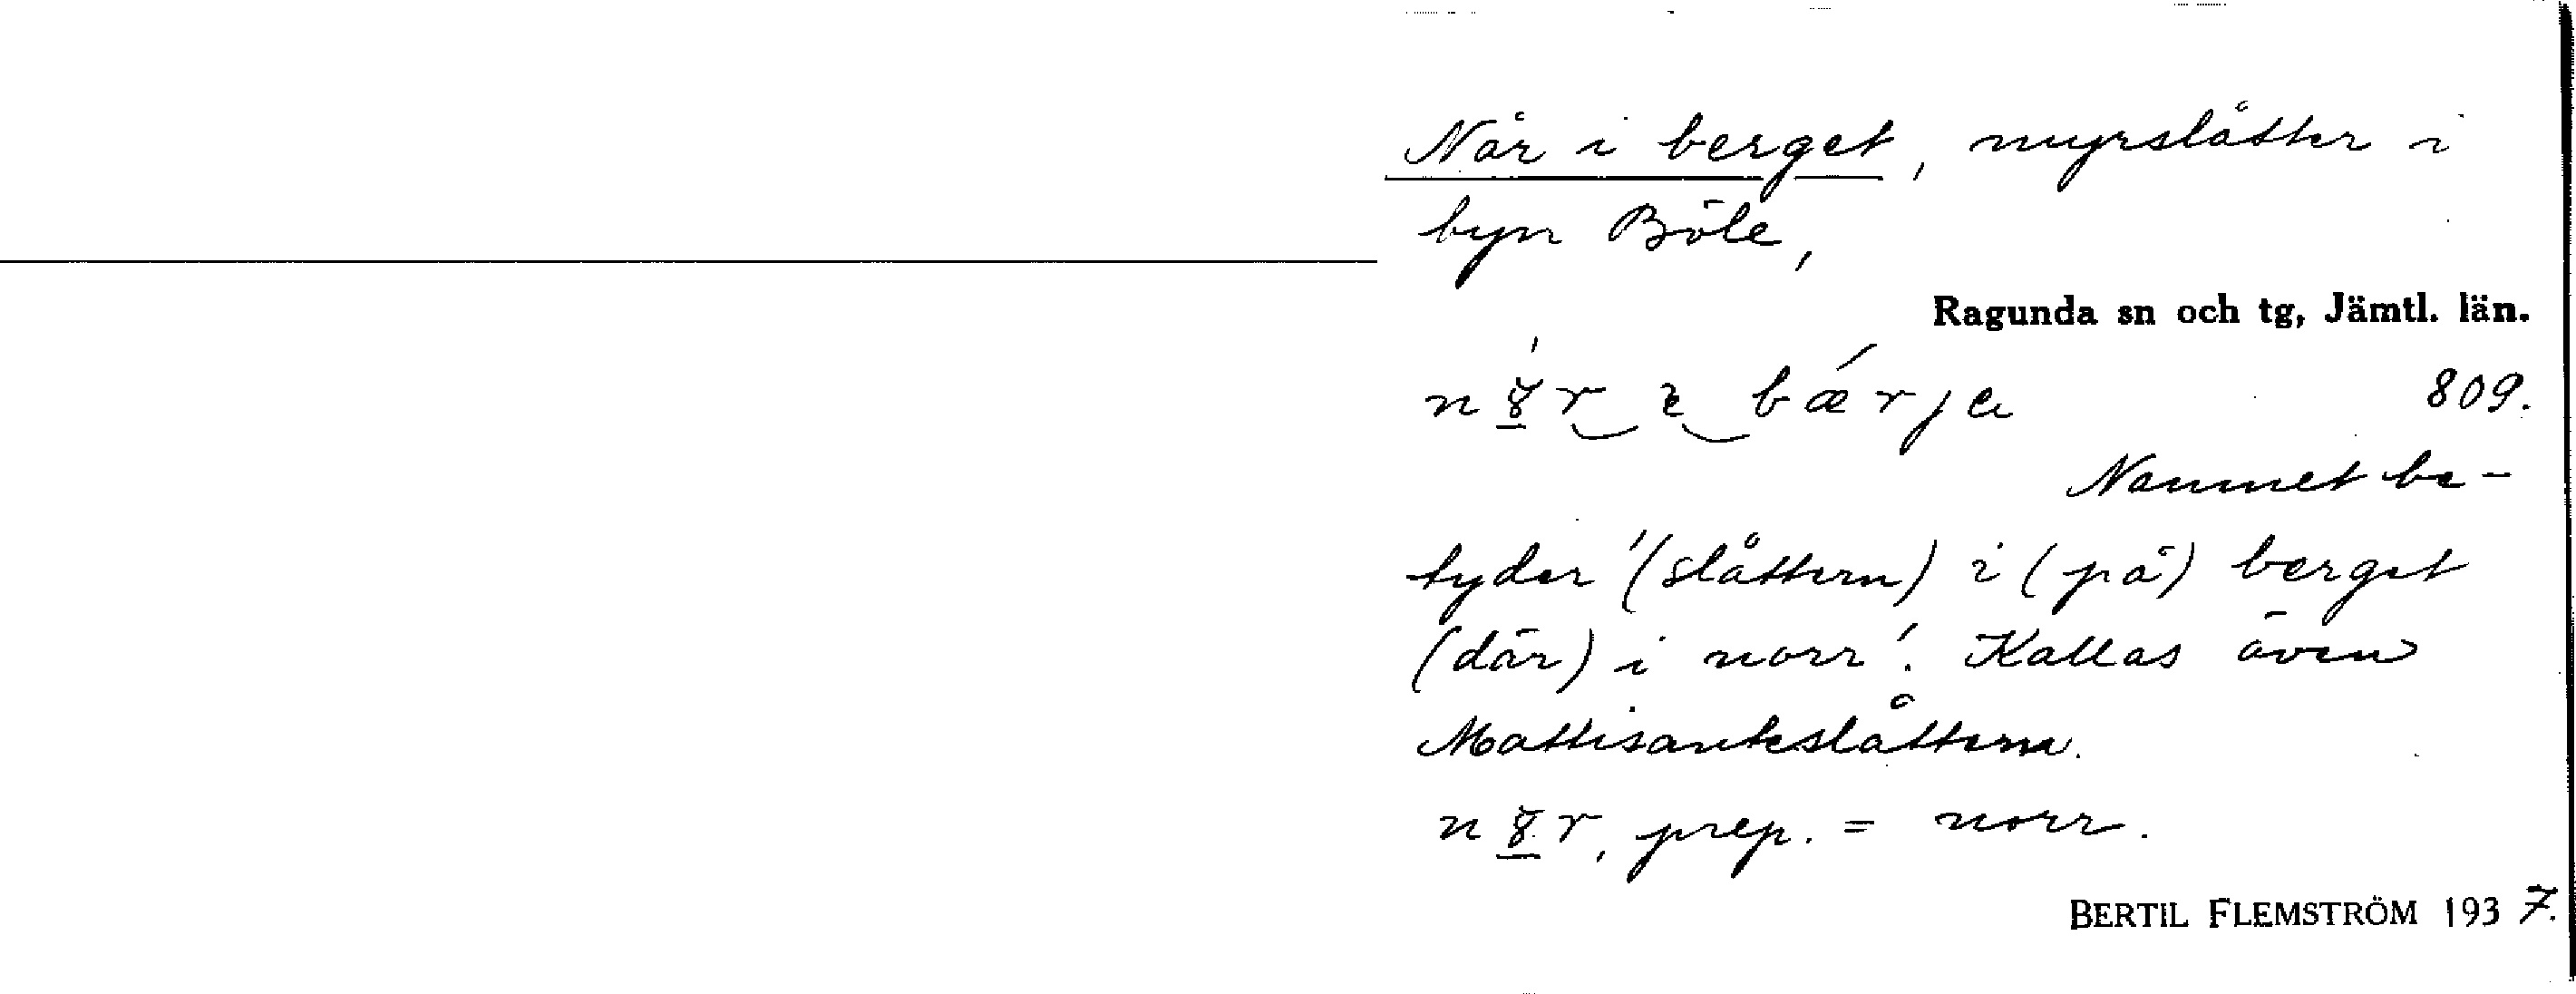 Når i berget, myrslåtter i
byn Böle,
Ragunda sn och tg, Jämtl. län.
bærja 809.
Namnet be-
tyder '(slåttern) i (på) berget
(där) i norr'. Kallas även
prep. = norr.
BERTIL FLEMSTRÖM 1937.